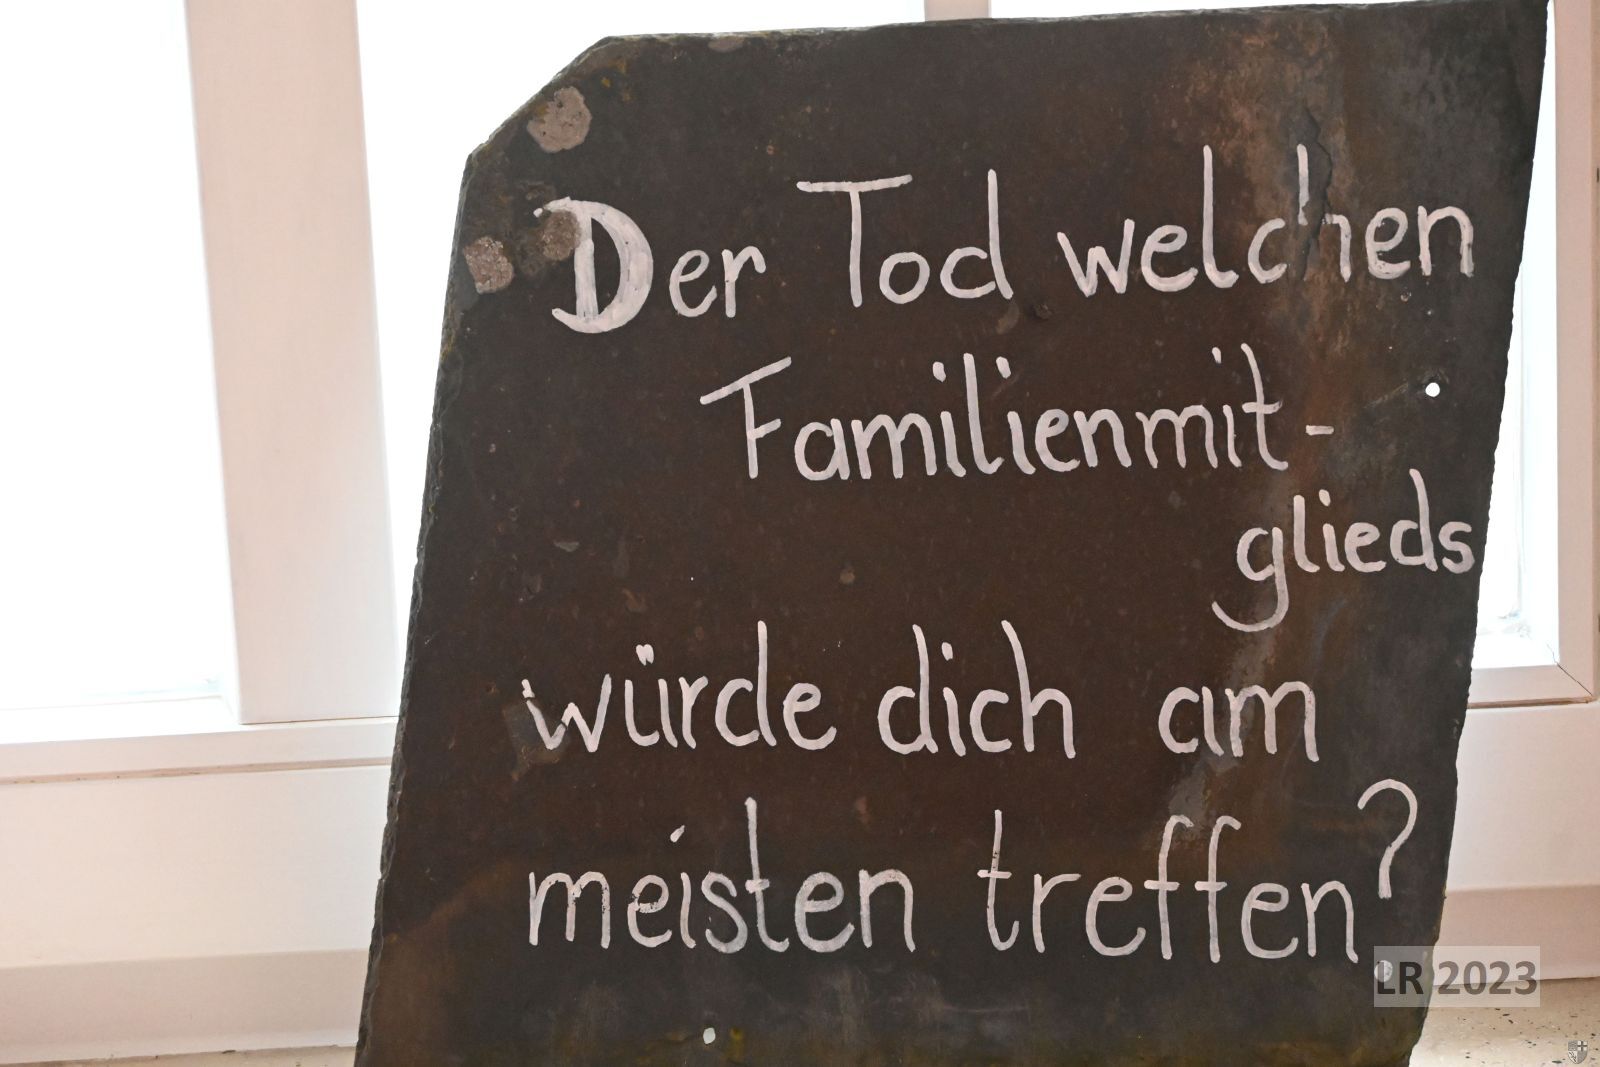 Der Tod welchen
Familienmit-
glieds
würde dich am
meisten treffen?
LR 2023